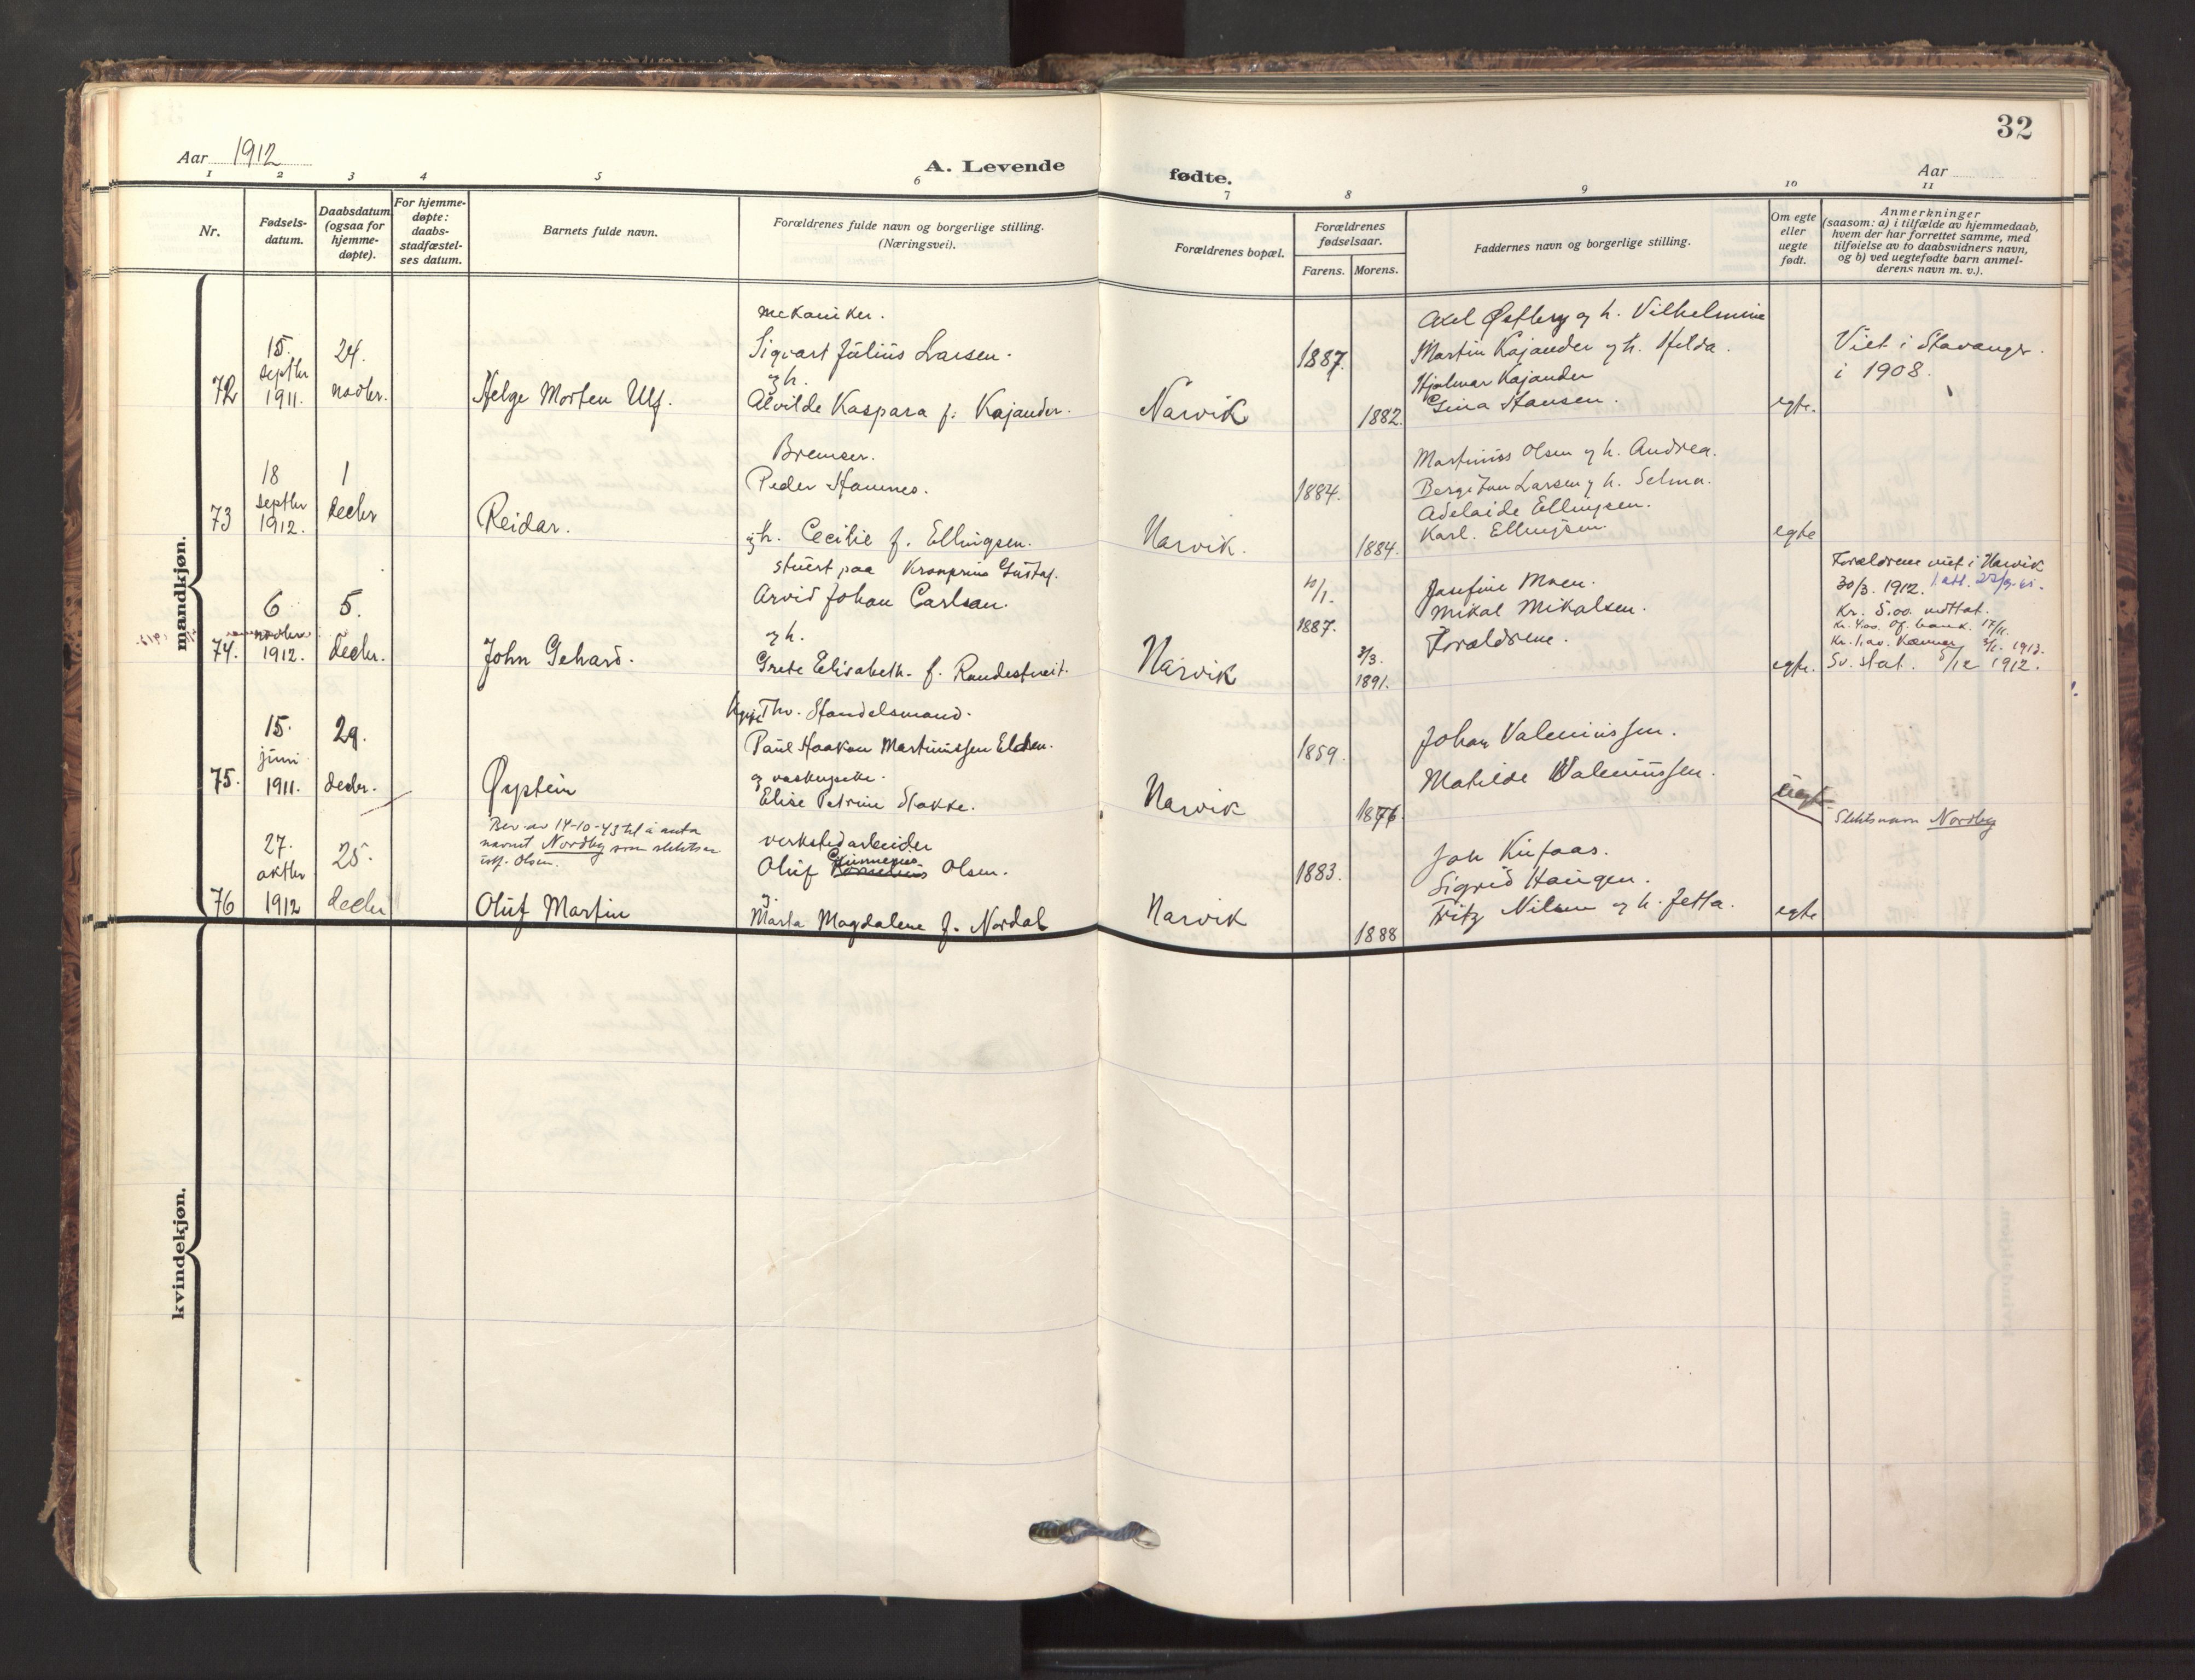 32
Aar 1912
A. Levende
fødte.
Aar
1 2 3 4 5 6 7 8 9 10 11
Nr.
Fødsels-
datum.
Daabsdatum
(ogsaa for
hjemme-
døpte).
For hjemme-
døpte:
daabs-
stadfæstel-
ses datum.
Barnets fulde navn.
Forældrenes fulde navn og borgerlige stilling.
(Næringsvei).
Forældrenes bopæl.
Forældrenes
fødselsaar.
Farens. Morens.
Faddernes navn og borgerlige stilling.
Om egte
eller
uegte
født.
Anmerkninger
(saasom: a) i tilfælde av hjemmedaab,
hvem der har forrettet samme, med
tilføielse av to daabsvidners navn,
og b) ved uegtefødte barn anmel-
derens navn m. v.).
mandkjøn.
72
15.
septbr
1911.
24.
novbr.
Helge Morten Ulf.
mekaniker.
Sigvart Julius Larsen.
og h.
Alvilde Kaspara f. Kajander.
Narvik
1887.
1882.
Axel Østberg og h. Vilhelmine
Martin Kajander og h. Hilda.
Hjalmar Kajander
Gina Hansen.
egte.
Viet i Stavanger.
i 1908.
73
18
septbr
1912.
1
decbr
Reidar.
Bremser.
Peder Hamnes.
og h. Cecilie f. Ellingsen.
Narvik.
1884.
1884.
Martinius Olsen og h. Andrea.
Larsen og h. Selma.
Adelaide Ellingsen.
Karl. Ellingsen.
egte
74.
6
novbr
1912.
5.
decbr.
John Gehard.
stuert paa Kronprins Gustaf.
Arvid Johan Carlson.
og h.
Grete Elisabeth. f. Randestveit.
Narvik
10/1.
1887.
3/3.
1891.
Josefine Moen.
Mikal Mikalsen.
Forældrene.
egte.
Forældrene viet i Narvik
30/3. 1912.
Kr. 5.00 mottat.
Kr. 4.00 17/11.
Kr. 1.00 Kæmner 1912.
Sv. stat. 5/12 1912.
75.
15.
juni
1911.
29.
decbr.
Øystein
Thv. Handelsmand.
Paul Haakon Martinussen Elden.
og vaskepike.
Elise Petrine Stokke.
Narvik
1859.
1876.
Johan Valeniussen.
Matilde Waleniussen.
uegte
76
27.
oktbr
1912
25.
decbr
Bev. av 14-10-43 til å anta
navnet Nordby som slektsn
istf. Olsen.
Oluf Martin
verkstedarbeider
Oluf Olsen.
og
Marta Magdalene f. Nordal
Narvik
1883.
1888
Joh Kufaas.
Sigrid Haugen.
Fritz Nilsen og h. Jetta.
egte
Slektsnavn Nordby
kvindekjøn.